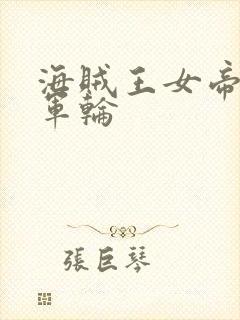 海賊王女帝
軍輪
張巨琴